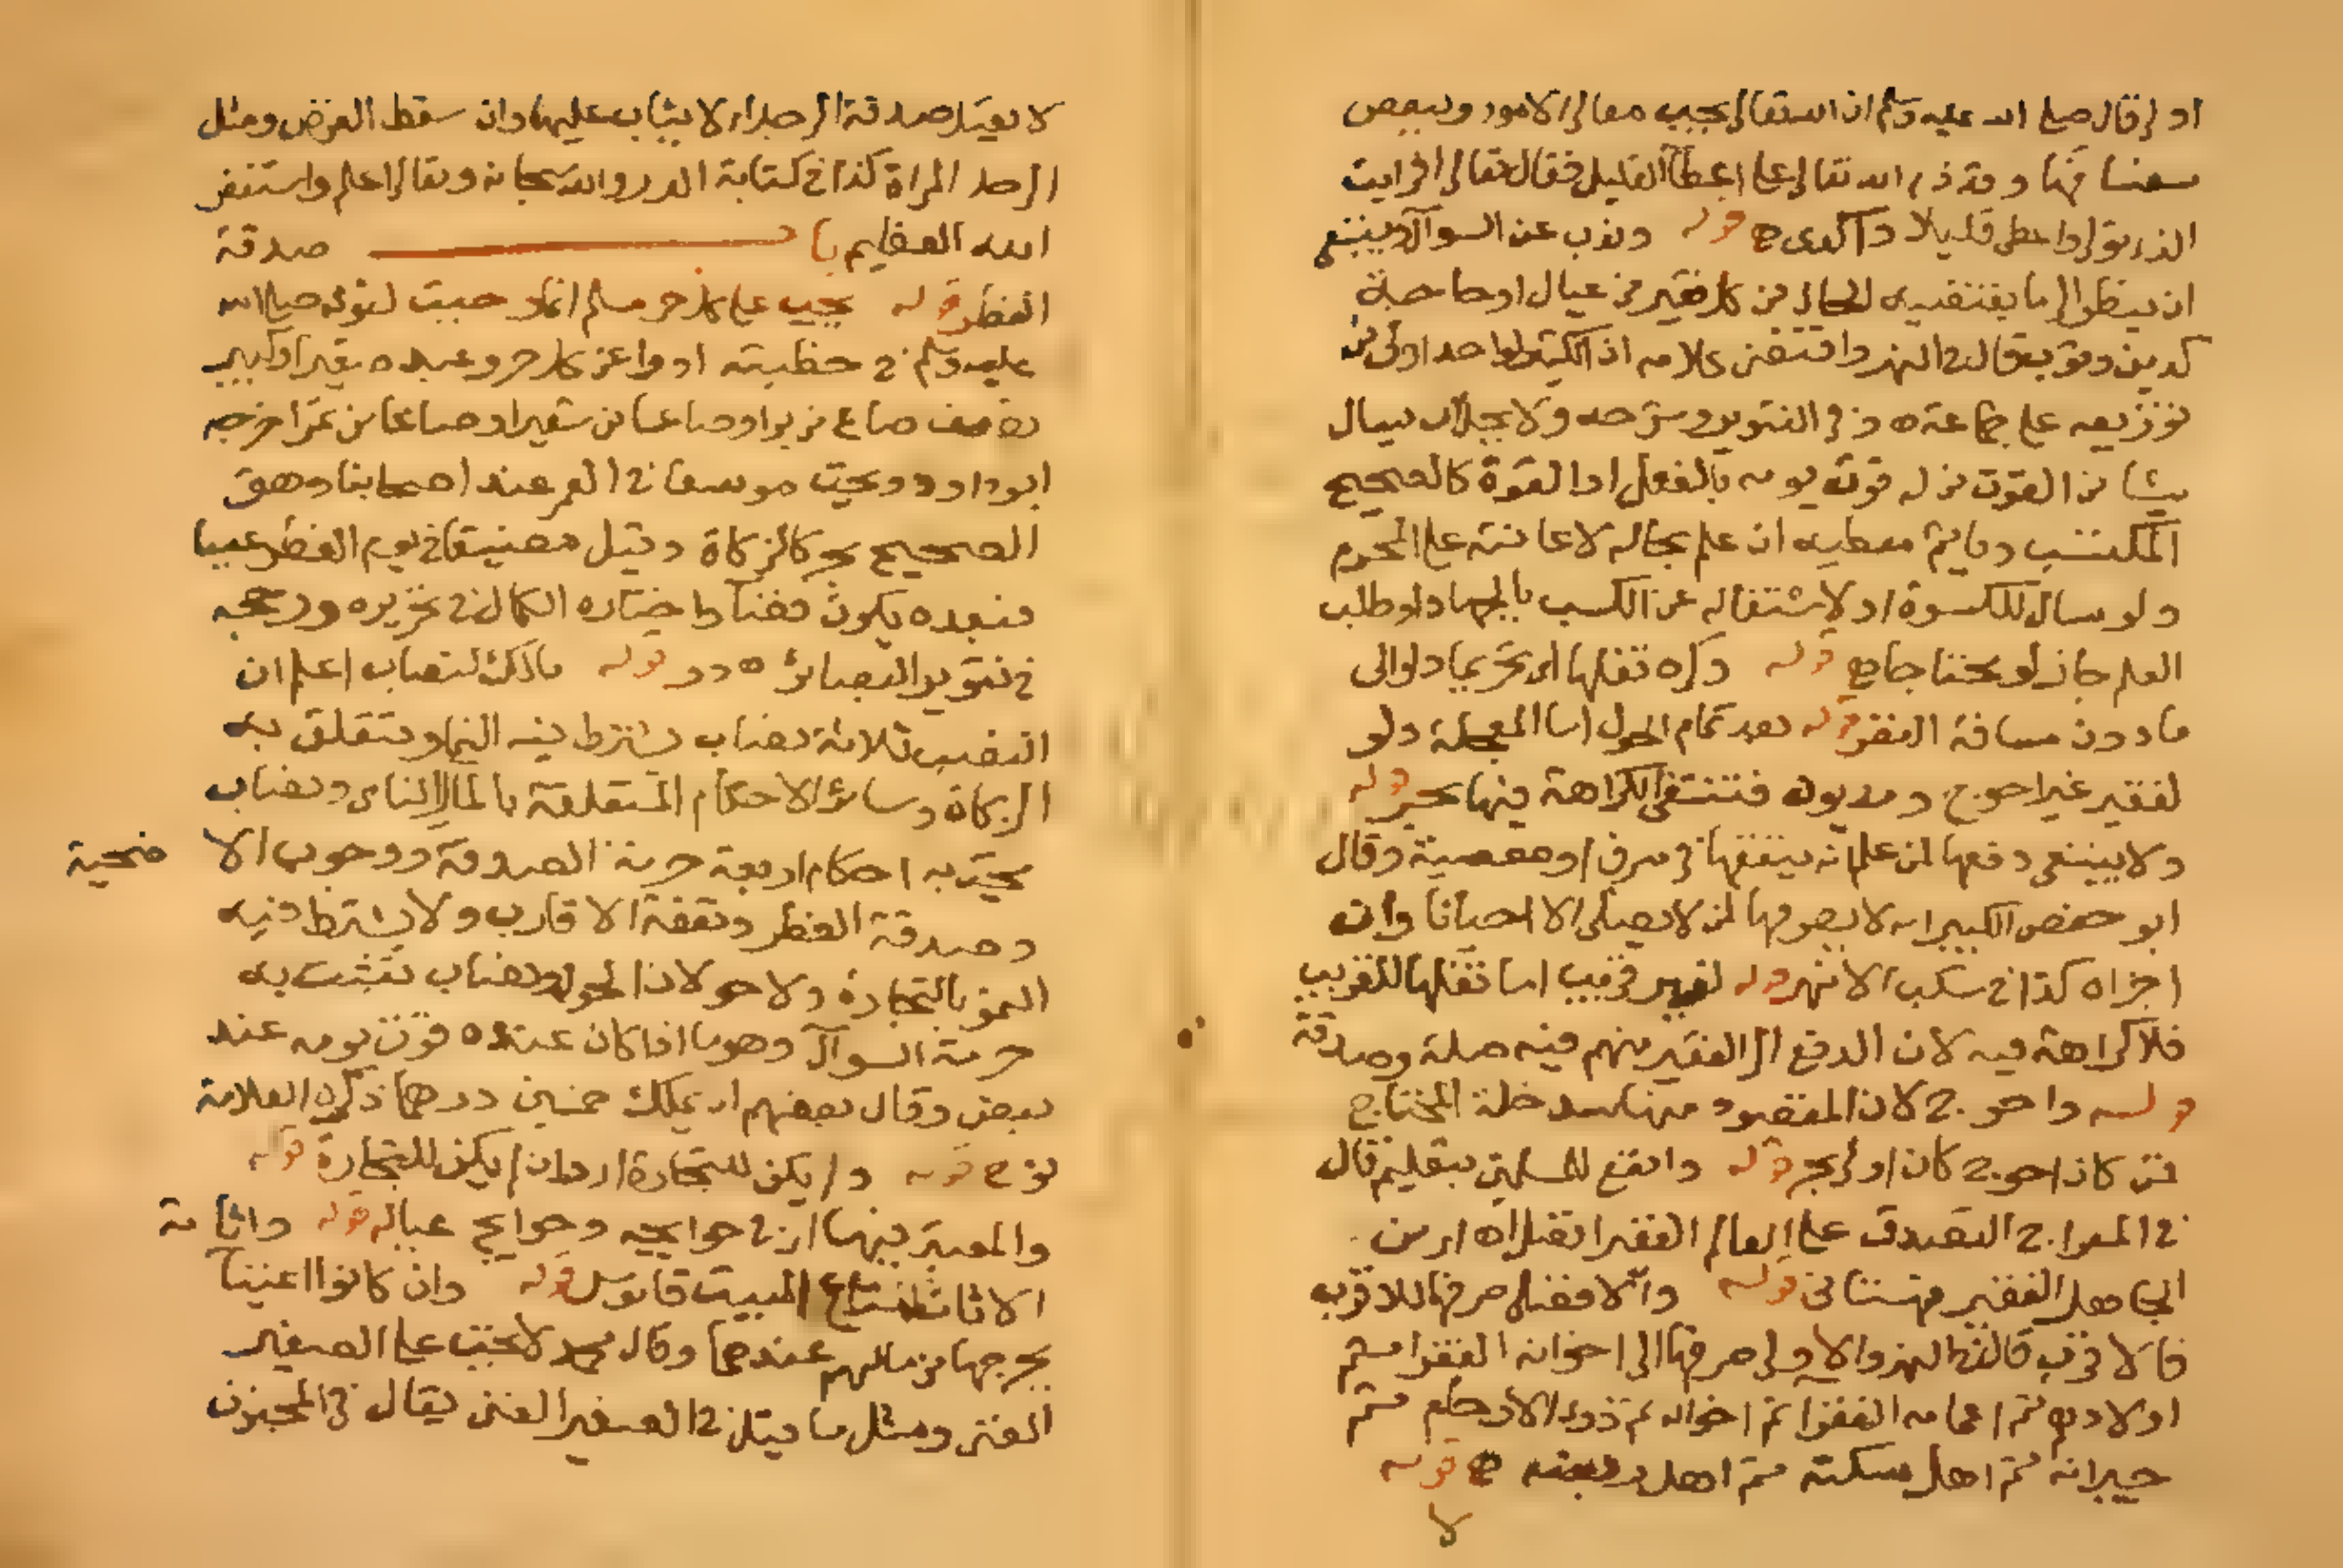 اولى قال صلى الله عليه وسلم ان الله تعالى يحب معالى الامور ويبغض
سفسافها وقد ذم الله تعالى على اعطاء القليل فقال تعالى افرايت
الذى تولى واعطى قليلا واكدى ح قوله وندب عن السوال وينبغى
ان ينظر الى ما يقتضيه الحال من كل فقير من عيال او حاجة
كدين وثوب قال فى النهر واقتضى كلامه ان الكثير لواحد اولى من
توزيعه على جماعة ه وفى التنوير وشرحه ولا يحل ان يسال
شيئا من القوت من له قوت يومه بالفعل او بالقوة كالصحيح
المكتسب وياثم معطيه ان علم بحاله لاعانته على المحرم
ولو سال للكسوة او لاشتغاله عن الكسب بالجهاد او طلب
العلم جاز لو محتاجا ح قوله وكره نقلها اى تحريما ولو الى
ما دون مسافة القصر قوله بعد تمام الحول اما المعجلة ولو
لفقير غير احوج ومديون فتنتفى الكراهة فيها بحر قوله
ولا ينبغى دفعها لمن علم انه ينفقها فى سرف او معصية وقال
ابو حفص الكبير انه لا يصرفها لمن لا يصلى الا احيانا وان
اجزاه كذا فى سكب الانهر قوله لغير قريب اما نقلها للقريب
فلا كراهة فيه لان الدفع الى الفقير منهم فيه صلة وصدقة
قوله واحوج لان المقصود منها سد خلة المحتاج
فمن كان احوج كان اولى بحر قوله وانفع للمسلمين بتعليم قال
فى المعراج التصدق على العالم الفقير افضل اه اى من
الجاهل الفقير قهستانى قوله والافضل صرفها للاقرب
فالاقرب قال فى النهر والاولى صرفها الى اخوانه الفقرا ثم
اولادهم ثم اعمامه الفقرا ثم اخواله ثم ذوى الارحام ثم
جيرانه ثم اهل سكته ثم اهل ربضه ح قوله
لا
لا يقبل صدقة الرجل اى لا يثاب عليها وان سقط الفرض ومثل
الرجل المراة كذا فى كتابة الدرر والله سبحانه وتعالى اعلم واستغفر
الله العظيم باب صدقة
الفطر قوله يجب على كل حر مسلم انما وجبت لقوله صلى الله
عليه وسلم فى خطبته ادوا عن كل حر وعبد صغير او كبير
نصف صاع من بر او صاعا من شعير او صاعا من تمر اخرجه
ابو داود وتجب موسعا فى العمر عند اصحابنا وهو
الصحيح بحر كالزكاة وقيل مضيقا فى يوم الفطر عينا
فبعده يكون قضا واختاره الكمال فى تحريره ورجحه
فى تنوير البصائر ه در قوله مالك لنصاب اعلم ان
النصب ثلاثة نصاب يشترط فيه النما ويتعلق به
الزكاة وسائر الاحكام المتعلقة بالمال النامى ونصاب
يجب به احكام اربعة حرمة الصدقة ووجوب الا ضحية
وصدقة الفطر ونفقة الاقارب ولا يشترط فيه
النمو بالتجارة ولا حولان الحول ونصاب تثبت به
حرمة السوال وهو ما اذا كان عنده قوت يومه عند
بعض وقال بعضهم ان يملك خمسين درهما ذكره العلامة
نوح قوله ولم يكن للتجارة اى وان لم يكن للتجارة قوله
والمعتبر فيها اى فى حوايجه وحوايج عياله قوله واثاثه
الاثاث متاع البيت قاموس قوله وان كانوا اغنيا
يخرجها من مالهم عندهما وقال محمد لا تجب على الصغير
الغنى ومثل ما قيل فى الصغير الغنى يقال فى المجنون